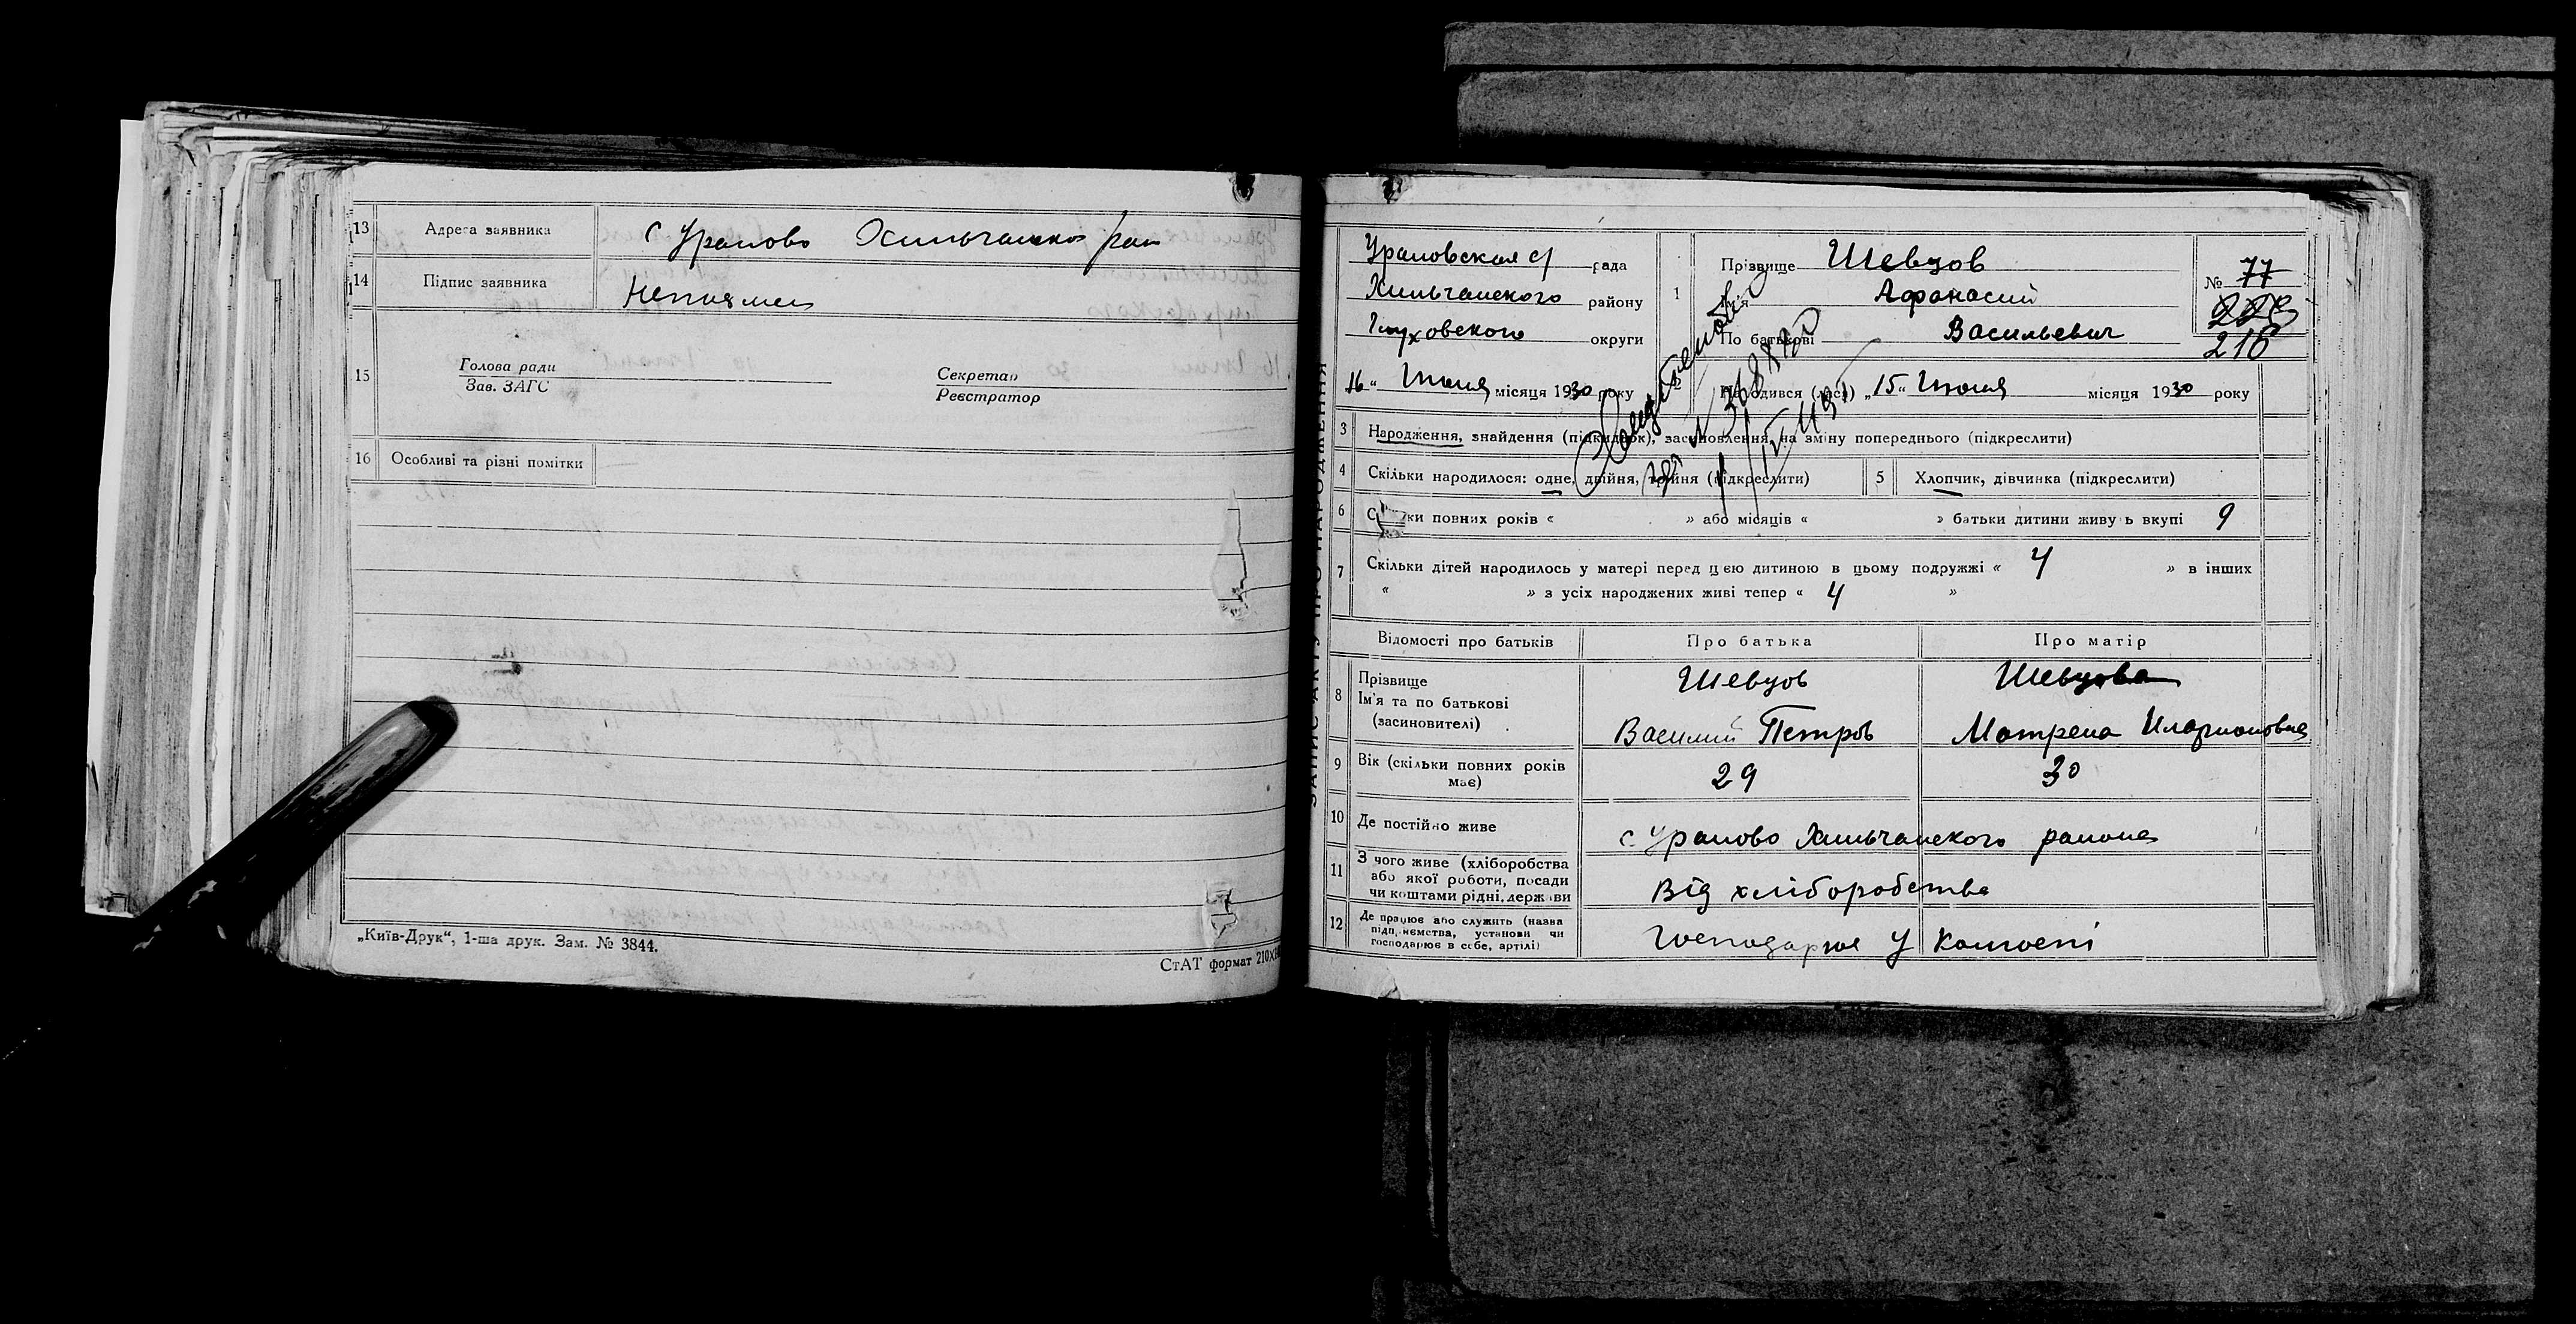 13 Адреса заявника с Уралово Хильчанско рай
14 Підпис заявника Неписмен
15 Голова ради
Зав. ЗАГС
Секретар
Реєстратор
16 Особливі та різні помітки
„Київ-Друк“, 1-ша друк. Зам. № 3844.
СтАТ формат 210х
ЗАПИС АКТУ ПРО НАРОДЖЕННЯ
Ураловская с/ рада
Хильчанского району
Глуховского округи
16 " Июля місяця 1930 року
1 Прізвище Шевцов
Ім'я Афанасий
По батькові Васильевич
№ 77
216
2 Народився (лася) „15" Июля місяця 1930 року
3 Народження, знайдення (підкидьок), засиновлення, на зміну попереднього (підкреслити)
4 Скільки народилося: одне, двійня, трійня (підкреслити)
5 Хлопчик, дівчинка (підкреслити)
6 Скільки повних років « » або місяців « » батьки дитини живуть вкупі 9
7 Скільки дітей народилось у матері перед цією дитиною в цьому подружжі « 4 » в інших
« » з усіх народжених живі тепер « 4 »
Відомості про батьків Про батька Про матір
8 Прізвище Шевцов Шевцова
Ім'я та по батькові
(засиновителі) Василий Петров Матрена Иларионовна
9 Вік (скільки повних років має) 29 30
10 Де постійно живе с Уралово Хильчанского района
11 З чого живе (хліборобства
або якої роботи, посади
чи коштами рідні, держави Від хліборобства
12 Де працює або служить (назва
підприємства, установи чи
господарює в себе, артілі) Господарює у